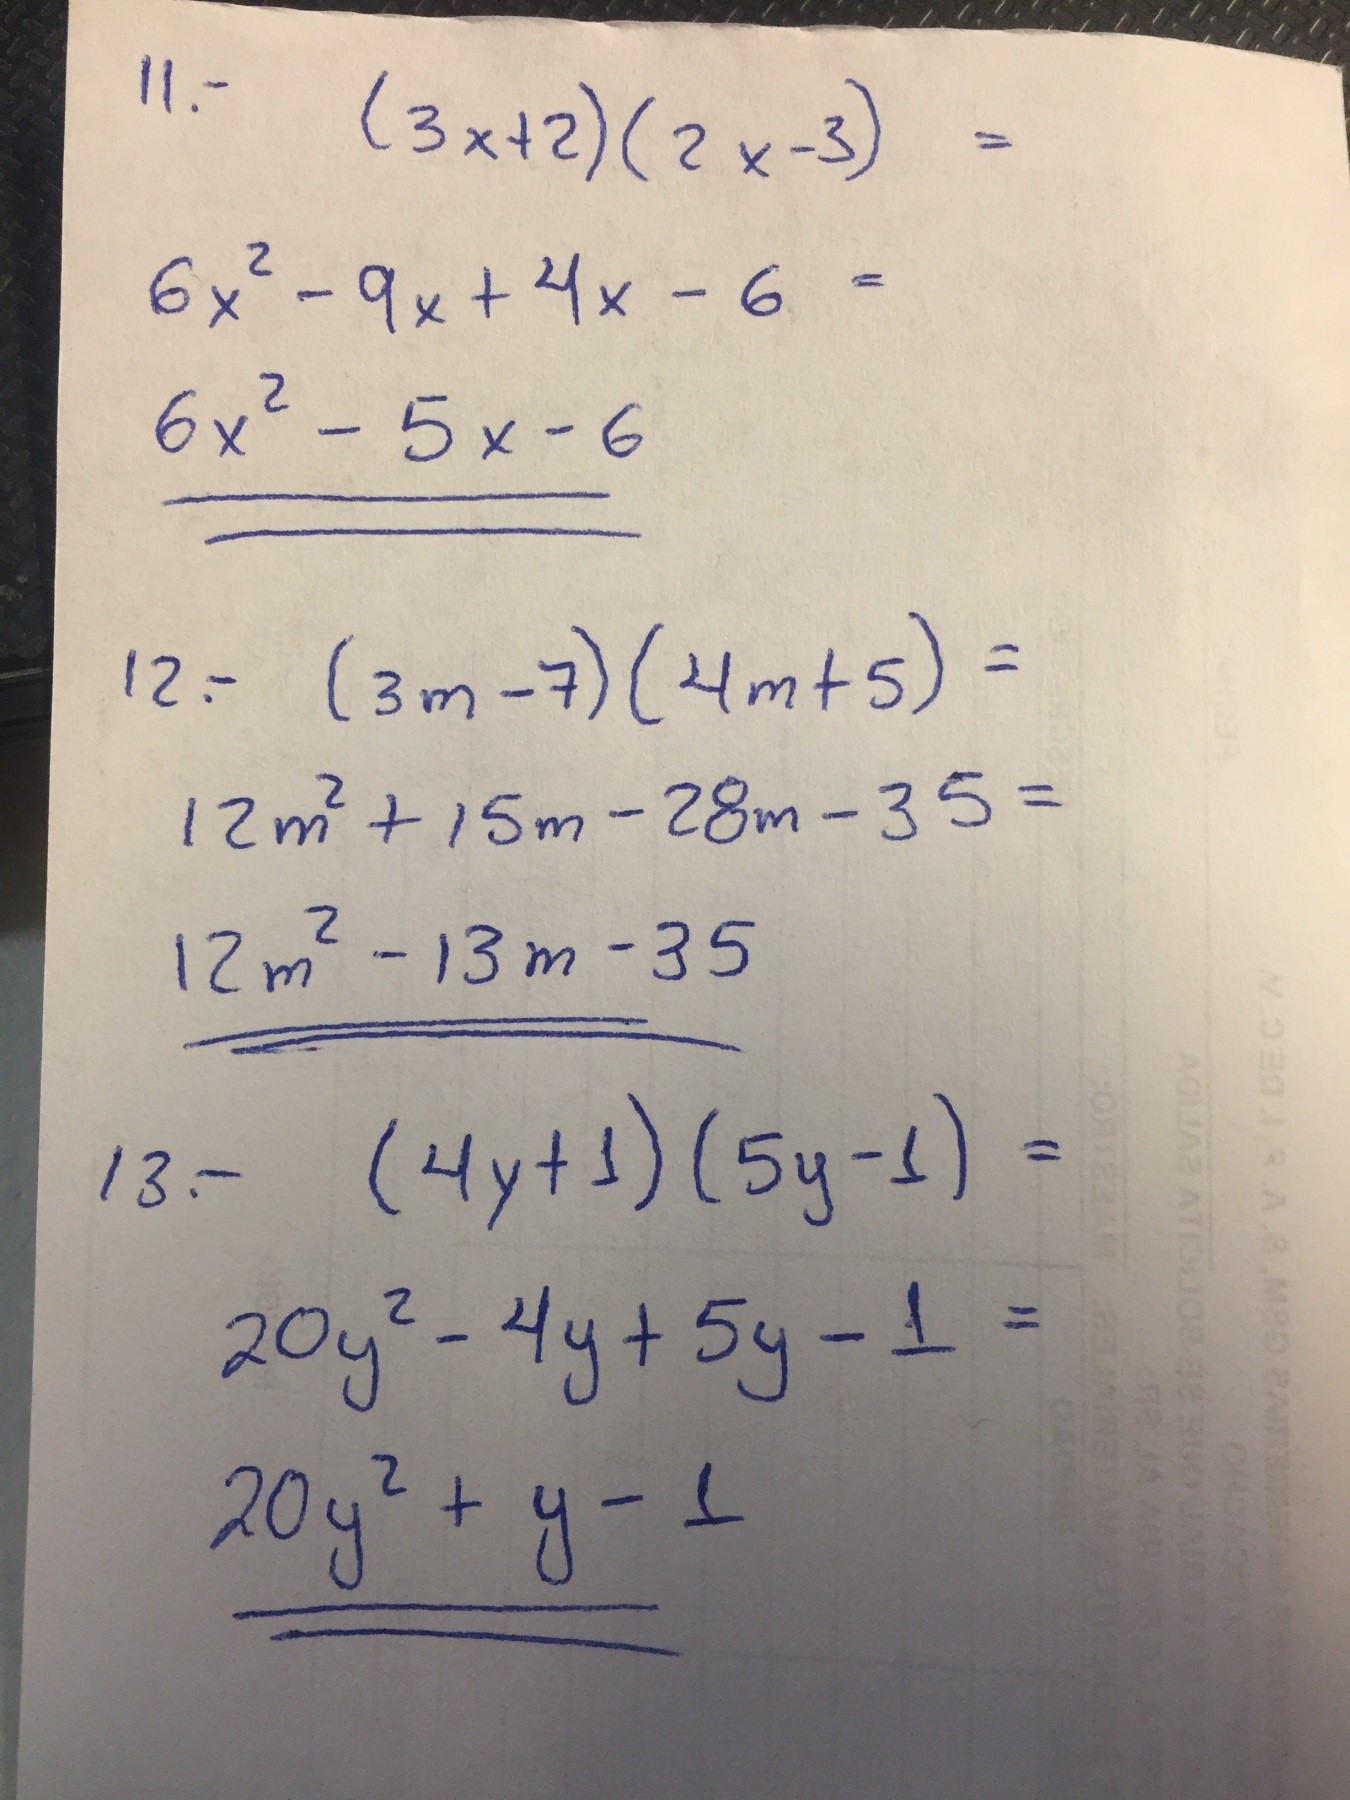 11.- (3x+2)(2x-3) =
6x² - 9x + 4x - 6 =
6x² - 5x - 6
12.- (3m-7)(4m+5) =
12m² + 15m - 28m - 35 =
12m² - 13m - 35
13.- (4y+1)(5y-1) =
20y² - 4y + 5y - 1 =
20y² + y - 1